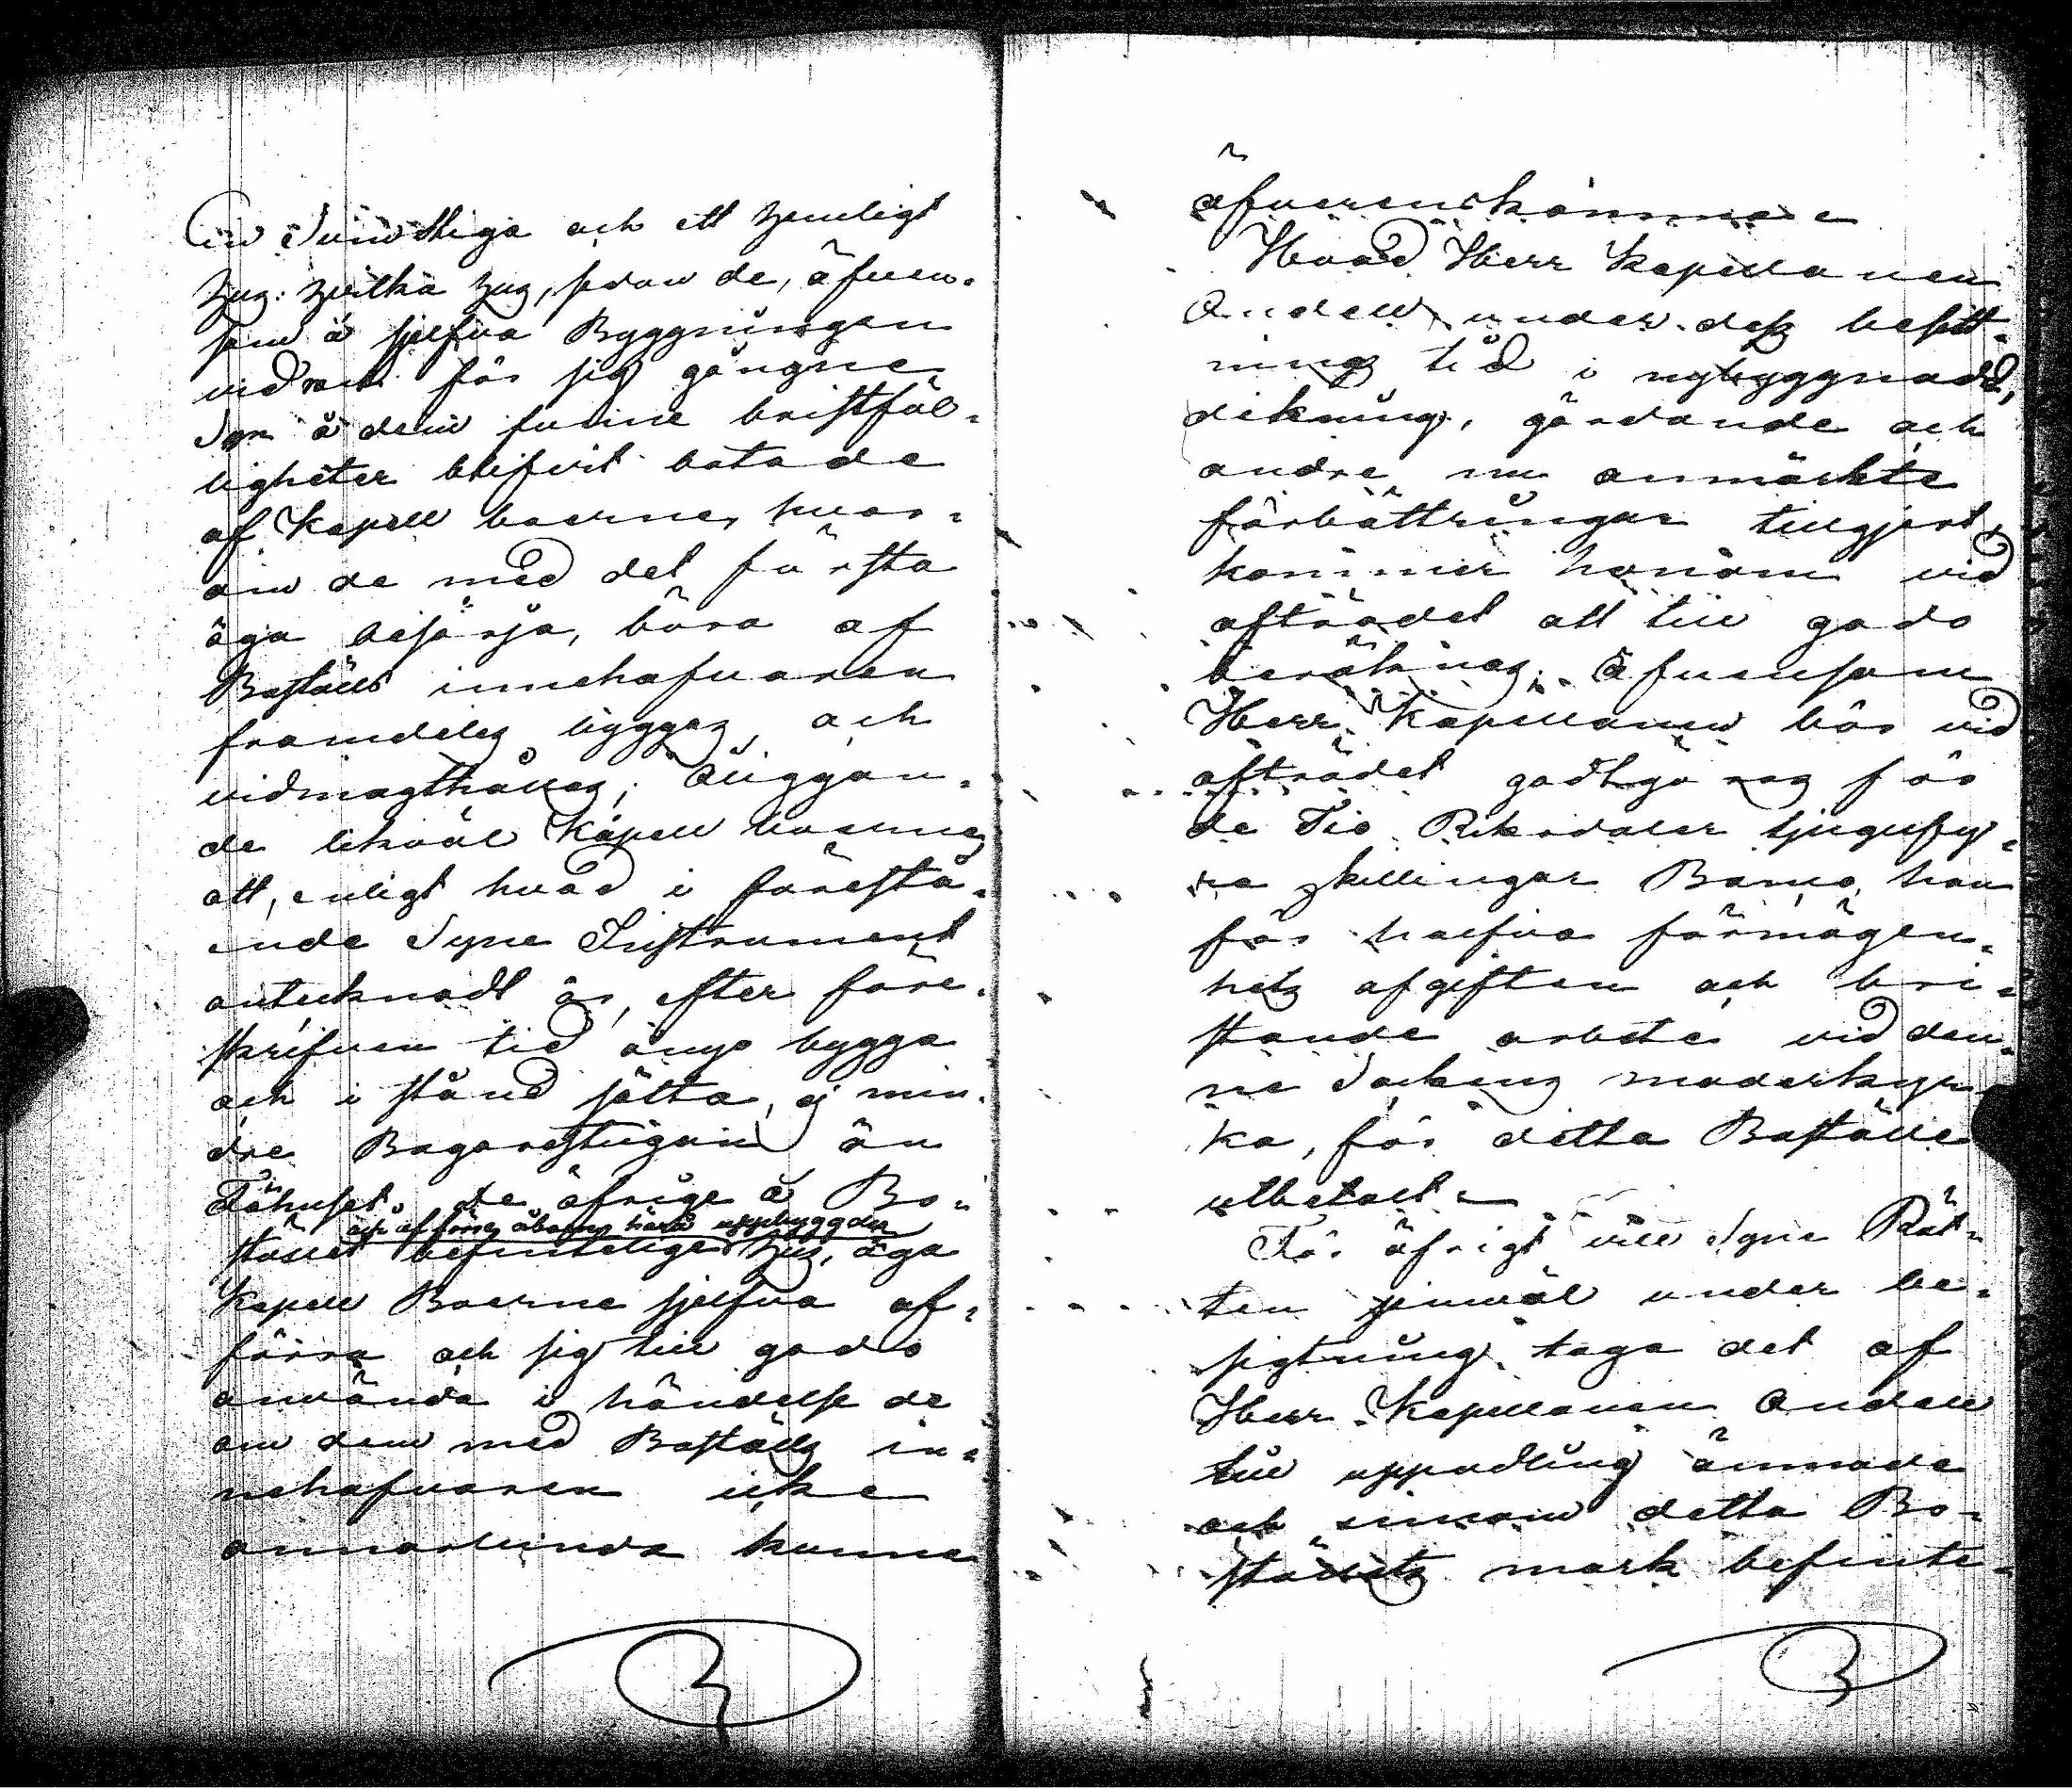 och ett hemligt
hus: hvilka hus, sedan de, äfven-
som å sjelfva Byggningen
vid nu för sig gångne
Syn å dem fundne bristfäl-
ligheter blifvit botade
af Kapell boerne, hvar-
om de med det första
äga besörja, böra af
Boställs innehafvaren
framdeles byggas, och
vidmagthållas; Åliggan-
de likväl Kapell boerne,
att, enligt hvad i förestå-
ende Syne Instrument
antecknadt är, efter före-
skrifven tid å nyo bygga
och i stånd sätta, ej min-
dre Bagarestugan än
Fähuset. de öfrige å Bo-
och af förre åboerne härå uppbyggder
stället befintelige hus, äga
Kapell Boerne sjelfva af-
föra och sig till godo
använda i händelse de
om dem med Boställs in-
nehafvaren icke
annorlunda kunna
öfverenskomma.
Hvad Herr Kapellanen
under dess besitt-
nings tid i nybyggnad,
dikning, gärdande och
andre nu anmärkte
förbättringar tillgjort,
kommer honom vid
afträdet att till godo
beräknas. Äfvensom
Herr Kapellanen bör vid
afträdet godtgöras för
de Tio Riksdaler tjugufy-
ra skillingar Banco, han
för halfva förmögen-
hets afgiften och bri-
stande arbete vid den-
ne Sockens moderkyr-
ka, för detta Boställe
utbetalt.
För öfrigt vill Syne Rät-
ten jemväl under be-
sigtning taga det af
Herr Kapellanen
till uppodling ämnade
och innom detta Bo-
ställets mark befinte-